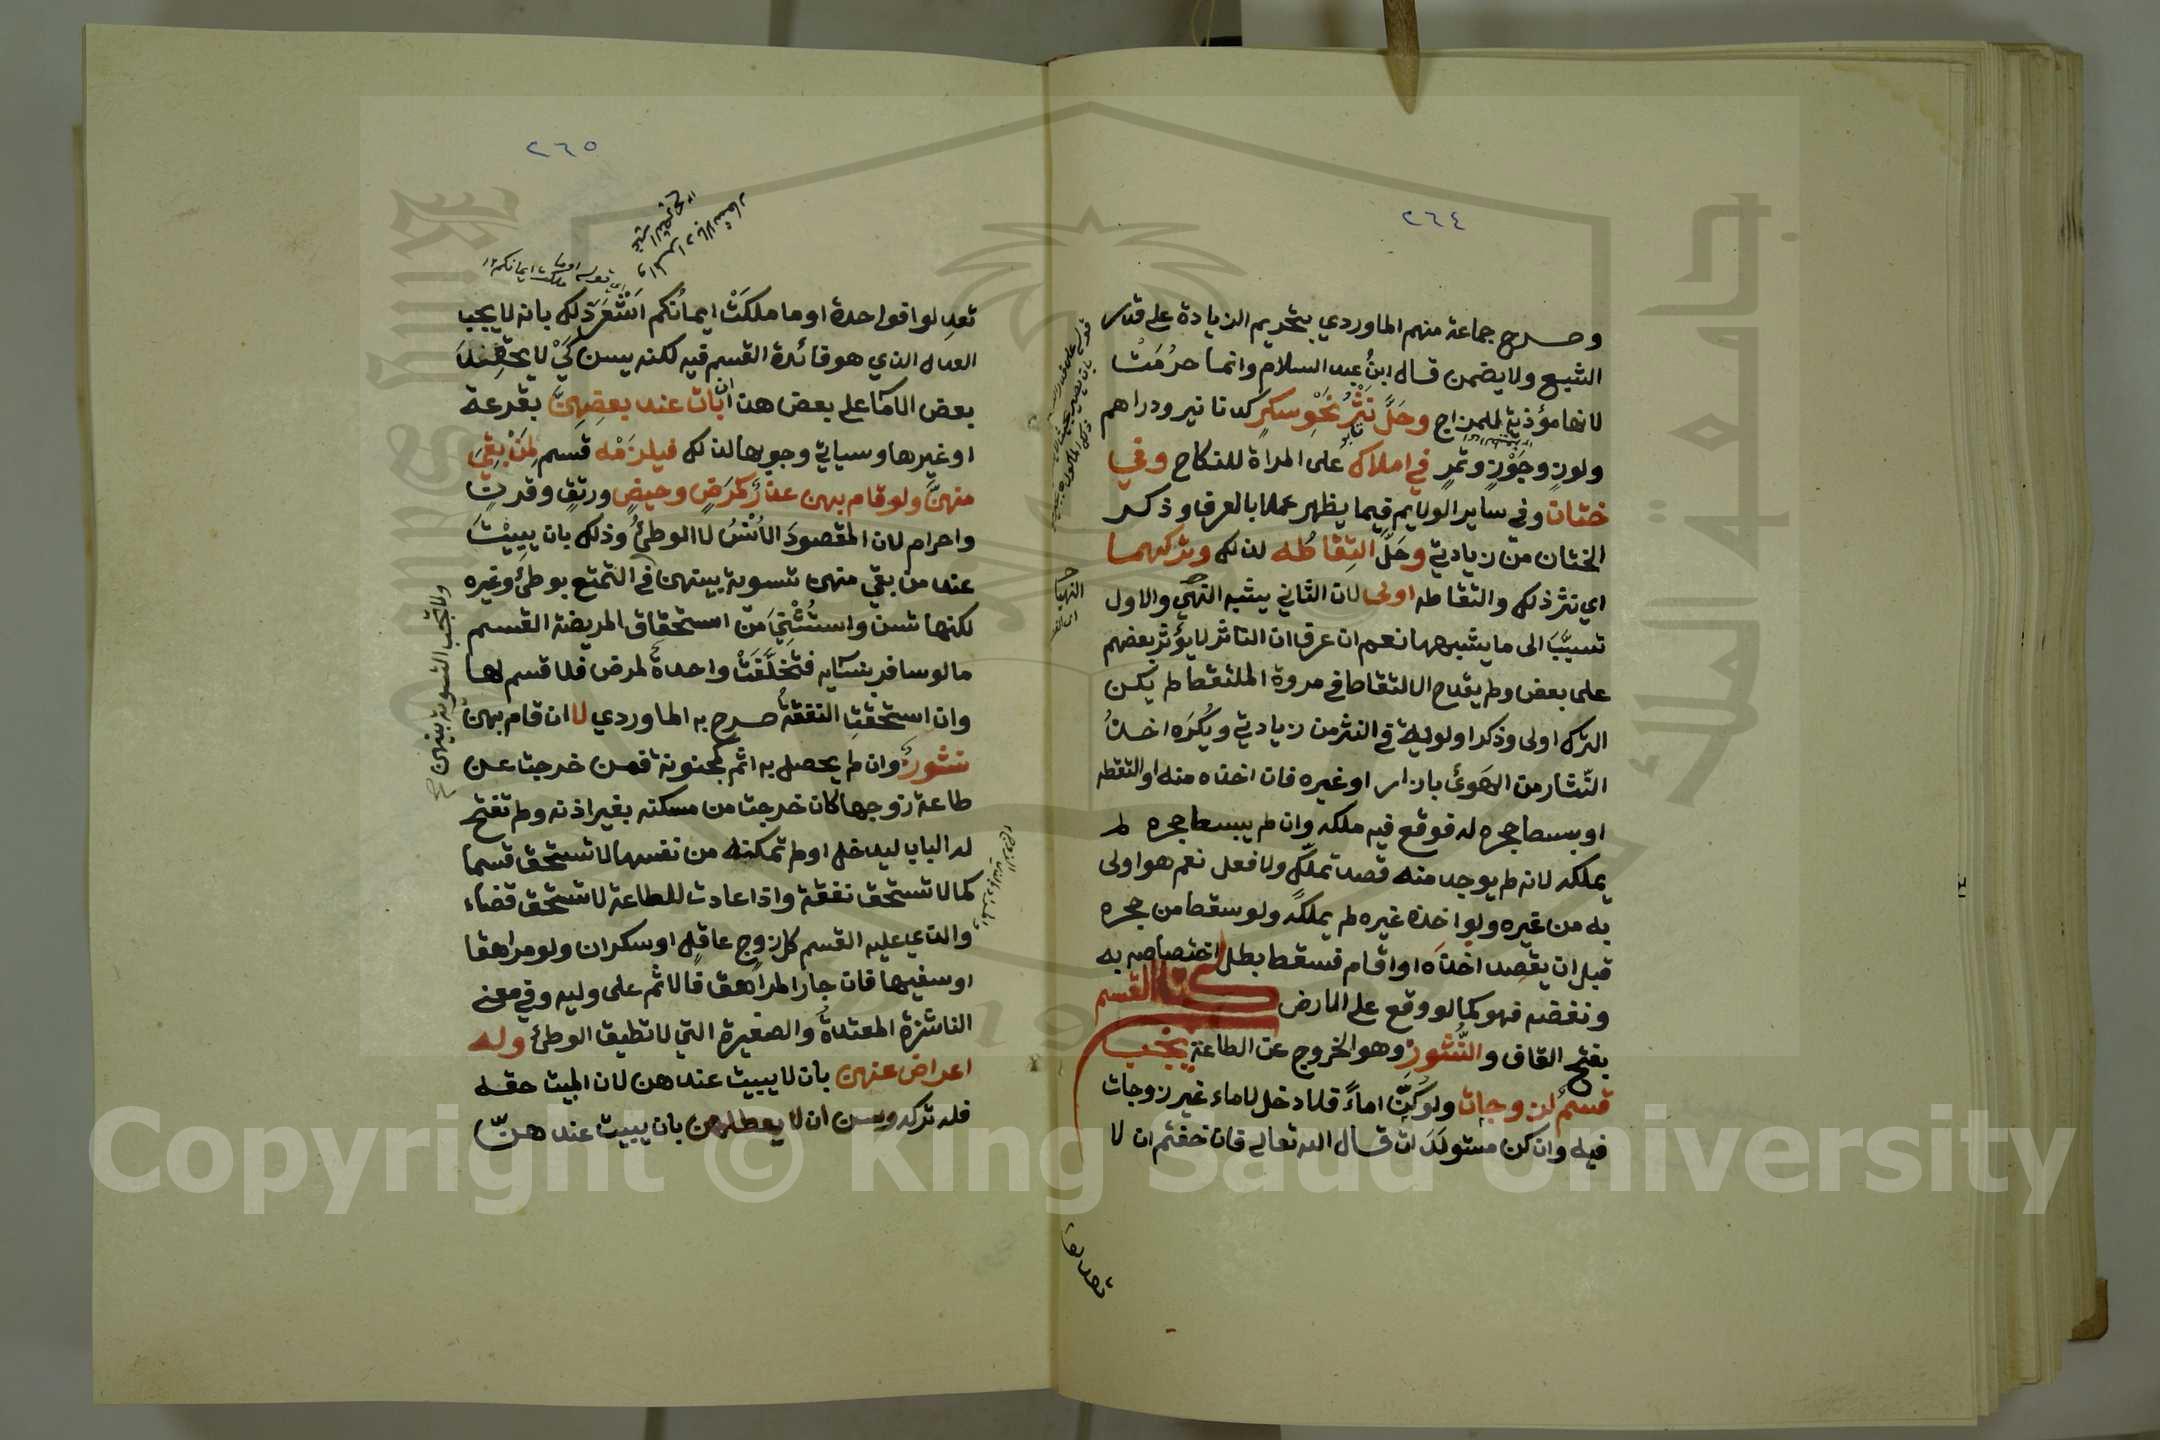 ٢٦٤
وصرح جماعة منهم الماوردي بتحريم الزيادة على قدر
الشبع ولا يضمن قال ابنُ عبد السلام وانما حرُمَتْ
لانها مؤذية للمزاج وحَلَّ نَثْرُ نَحْوِ سكرٍ كدنانير ودراهم
ولوزٍ وجَوْزٍ وتمرٍ في املاك على المراة للنكاح وفي
ختان وفي ساير الولايم فيما يظهر عملا بالعرف وذكر
الختان من زيادتي وحَلَّ التِقَاطُه لذلك وتركهما
اي نثر ذلك والتقاطه اولى لان الثاني يشبه النهبى والاول
تسبَّبَ الى ما يشبهها نعم ان عرف ان الناثر لا يؤثر بعضهم
على بعض ولم يقدح الالتقاط في مروة الملتقط لم يكن
الترك اولى وذكر اولوية في النثر من زيادتي ويُكرَه اخذُ
النّثار من الهَوىٰ بازار او غيره فان اخذه منه او التقطه
او بسط حجره له فوقع فيه ملكه وان لم يبسط حجره لم
يملكه لانه لم يوجد منه قصد تملّكٍ ولا فعل نعم هو اولى
به من غيره ولو اخذه غيره لم يملكه ولو سقط من حجره
قبل ان يقصد اخذَه او اقام فسقط بطل اختصاصه به
ونفضه فهو كما لو وقع على الارض كتاب القسم
بفتح القاف والنُّشوزِ وهو الخروج عن الطاعة يجب
قسمٌ لزوجات ولو كُنَّ اماءً فلا دخل لاماء غير زوجات
فيه وان كن مستولَدَات قال الله تعالى فان خفتم ان لا
تعدلوا
٢٦٥
تعدِلوا فواحدة او ما ملكَتْ ايمانُكم اَشْعَرَ ذلك بانه لا يجب
العدل الذي هو فائدة القسم فيه لكنه يسن كَيْ لا يحقد
بعض الاماء على بعض هذا ان بات عند بعضِهِنَّ بقرعة
او غيرها وسياتي وجوبها لذلك فيلزمْه قسم لِمَنْ بقِيَ
منهنَّ ولو قام بهن عذرٌ كمَرَضٍ وحيضٍ ورتقٍ وقرنٍ
واحرام لان المقصودَ الاُنْسُ لا الوطئُ وذلك بان يبِيْتَ
عند من بقي منهن تسوية بينهن في التمتع بوطئ وغيره
لكنها تسن واستُثْنِيَ من استحقاق المريضة القسم
ما لو سافر بنسايه فتخلَّفَتْ واحدةٌ لمرض فلا قسم لها
وان استحقتِ النفقةُ صرح به الماوردي لا ان قام بهن
نشوزٌ وان لم يحصل به اثم كمجنونة فمن خرجت عن
طاعة زوجها كان خرجت من مسكنه بغير اذنه ولم تفتح
له الباب ليدخل او لم تمكنه من نفسها لا تستحق قسما
كما لا تستحق نفقة واذا عادت للطاعة لا تستحق قضاء
والذي عليه القسم كل زوج عاقل او سكران ولو مراهقا
او سفيها فان جار المراهق فالاثم على وليه وفي معنى
الناشزة المعتدةُ والصغيرة التي لا تطيق الوطئ وله
اعراض عنهن بان لا يبيت عندهن لان المبيت حقه
فله تركه ويسن ان لا يعطلهن بان يبيت عندهنّ
اي قوله او ما
ملكت ايمانكم ١٢
ولا تجب التسوية بينهن
Copyright © King Saud University
جامعة الملك سعود
1957